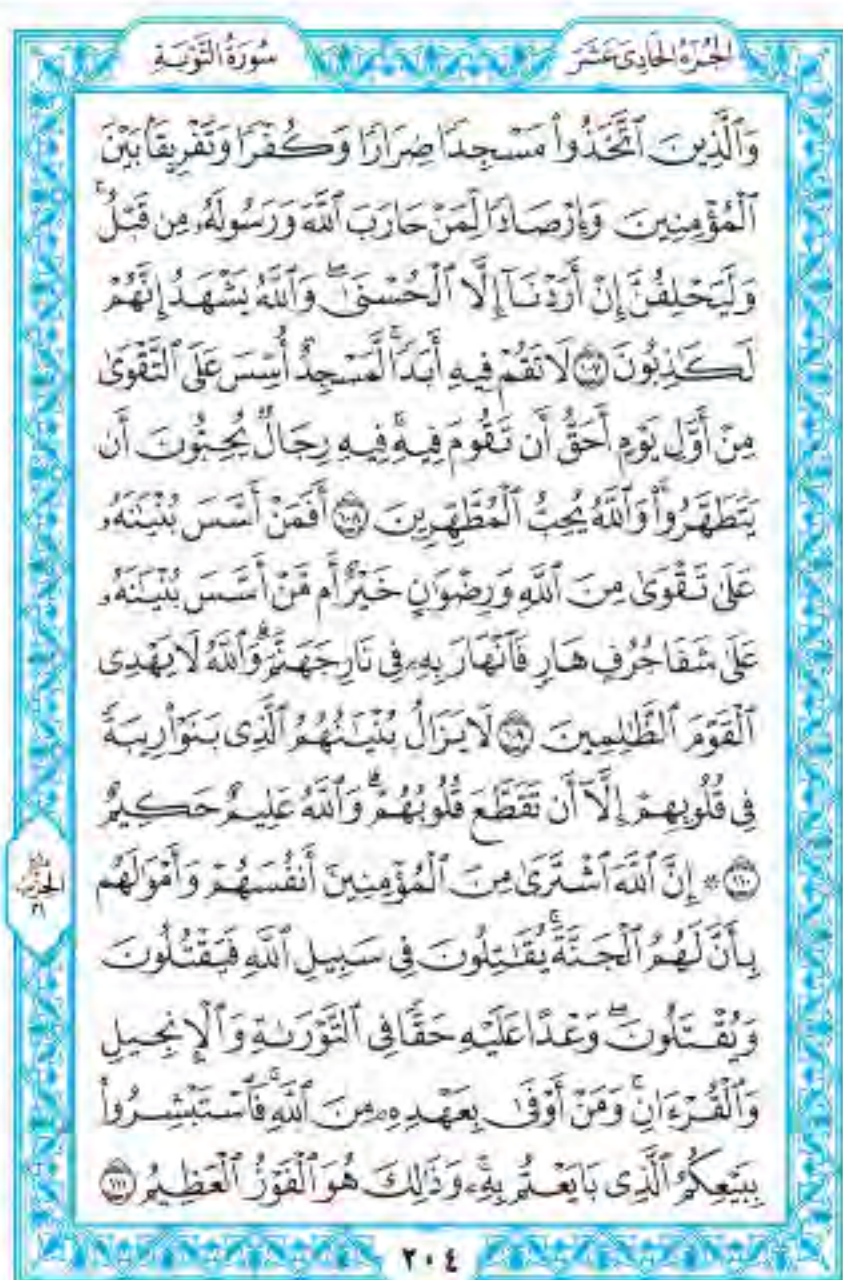 الجُزْءُ الحَادِىَ عَشَرَ
سُورَةُ التَّوْبَةِ
وَٱلَّذِينَ ٱتَّخَذُوا۟ مَسْجِدًا ضِرَارًا وَكُفْرًا وَتَفْرِيقًۢا بَيْنَ
ٱلْمُؤْمِنِينَ وَإِرْصَادًا لِّمَنْ حَارَبَ ٱللَّهَ وَرَسُولَهُۥ مِن قَبْلُ ۚ
وَلَيَحْلِفُنَّ إِنْ أَرَدْنَآ إِلَّا ٱلْحُسْنَىٰ ۖ وَٱللَّهُ يَشْهَدُ إِنَّهُمْ
لَكَـٰذِبُونَ ١٠٧ لَا تَقُمْ فِيهِ أَبَدًا ۚ لَّمَسْجِدٌ أُسِّسَ عَلَى ٱلتَّقْوَىٰ
مِنْ أَوَّلِ يَوْمٍ أَحَقُّ أَن تَقُومَ فِيهِ ۚ فِيهِ رِجَالٌ يُحِبُّونَ أَن
يَتَطَهَّرُوا۟ ۚ وَٱللَّهُ يُحِبُّ ٱلْمُطَّهِّرِينَ ١٠٨ أَفَمَنْ أَسَّسَ بُنْيَـٰنَهُۥ
عَلَىٰ تَقْوَىٰ مِنَ ٱللَّهِ وَرِضْوَٰنٍ خَيْرٌ أَم مَّنْ أَسَّسَ بُنْيَـٰنَهُۥ
عَلَىٰ شَفَا جُرُفٍ هَارٍ فَٱنْهَارَ بِهِۦ فِى نَارِ جَهَنَّمَ ۗ وَٱللَّهُ لَا يَهْدِى
ٱلْقَوْمَ ٱلظَّـٰلِمِينَ ١٠٩ لَا يَزَالُ بُنْيَـٰنُهُمُ ٱلَّذِى بَنَوْا۟ رِيبَةً
فِى قُلُوبِهِمْ إِلَّآ أَن تَقَطَّعَ قُلُوبُهُمْ ۗ وَٱللَّهُ عَلِيمٌ حَكِيمٌ
١١٠ ۞ إِنَّ ٱللَّهَ ٱشْتَرَىٰ مِنَ ٱلْمُؤْمِنِينَ أَنفُسَهُمْ وَأَمْوَٰلَهُم
بِأَنَّ لَهُمُ ٱلْجَنَّةَ ۚ يُقَـٰتِلُونَ فِى سَبِيلِ ٱللَّهِ فَيَقْتُلُونَ
وَيُقْتَلُونَ ۖ وَعْدًا عَلَيْهِ حَقًّا فِى ٱلتَّوْرَىٰةِ وَٱلْإِنجِيلِ
وَٱلْقُرْءَانِ ۚ وَمَنْ أَوْفَىٰ بِعَهْدِهِۦ مِنَ ٱللَّهِ ۚ فَٱسْتَبْشِرُوا۟
بِبَيْعِكُمُ ٱلَّذِى بَايَعْتُم بِهِۦ ۚ وَذَٰلِكَ هُوَ ٱلْفَوْزُ ٱلْعَظِيمُ ١١١
الحِزْب
٢١
٢٠٤